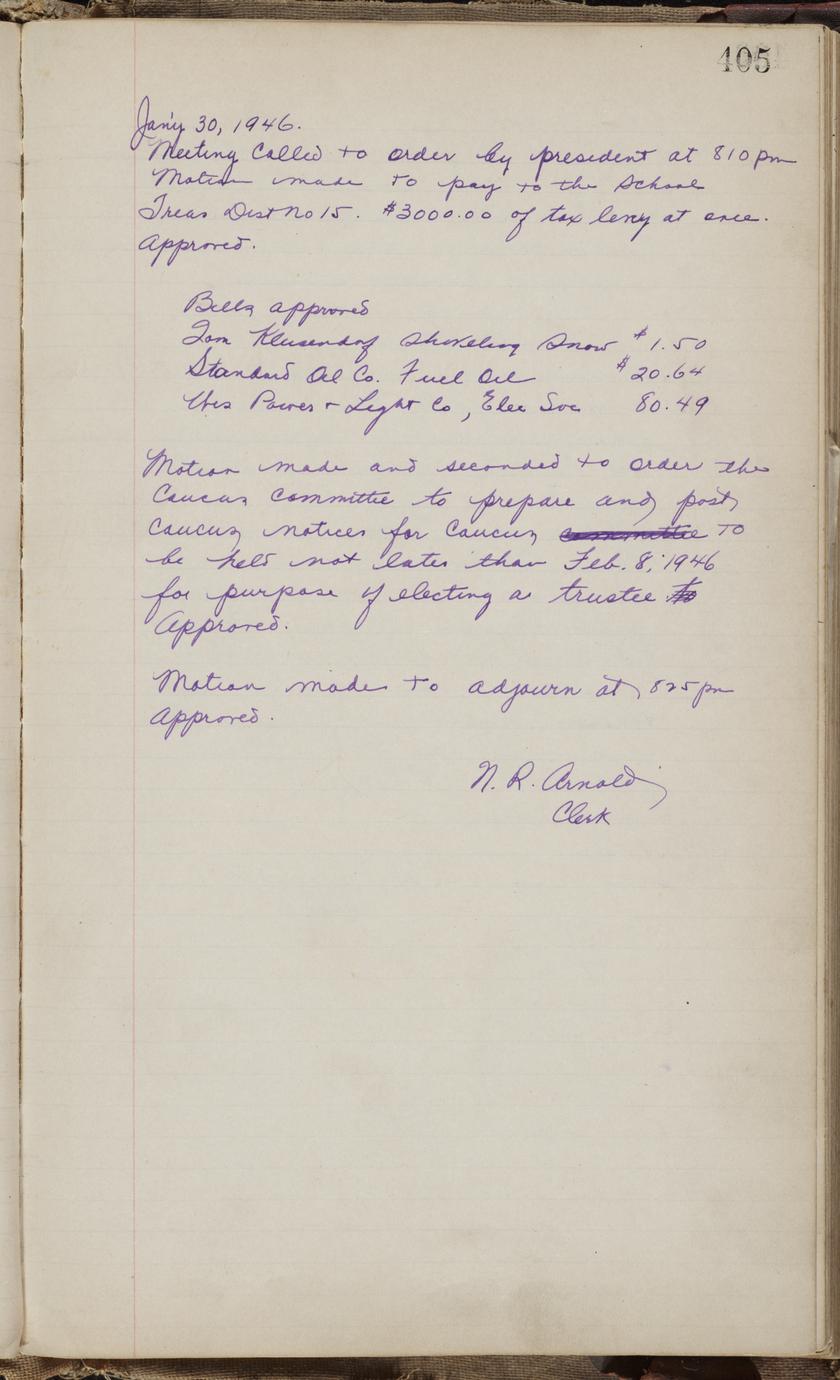 405
Jan'y 30, 1946.
Meeting Called to order by president at 810 pm
Motion made to pay to the School
Treas Dist No 15. $3000.00 of tax levy at once.
Approved.
Bills approved
Tom Klusendorf Shoveling Snow $1.50
Standard Oil Co. Fuel Oil $20.64
Wis Power + Light Co, Elec Svc 80.49
Motion made and seconded to order the
Caucus Committee to prepare and post
Caucus notices for Caucus committee to
be held not later than Feb. 8, 1946
for purpose of electing a trustee to
Approved.
Motion made to adjourn at 825 pm
Approved.
N. R. Arnold
Clerk